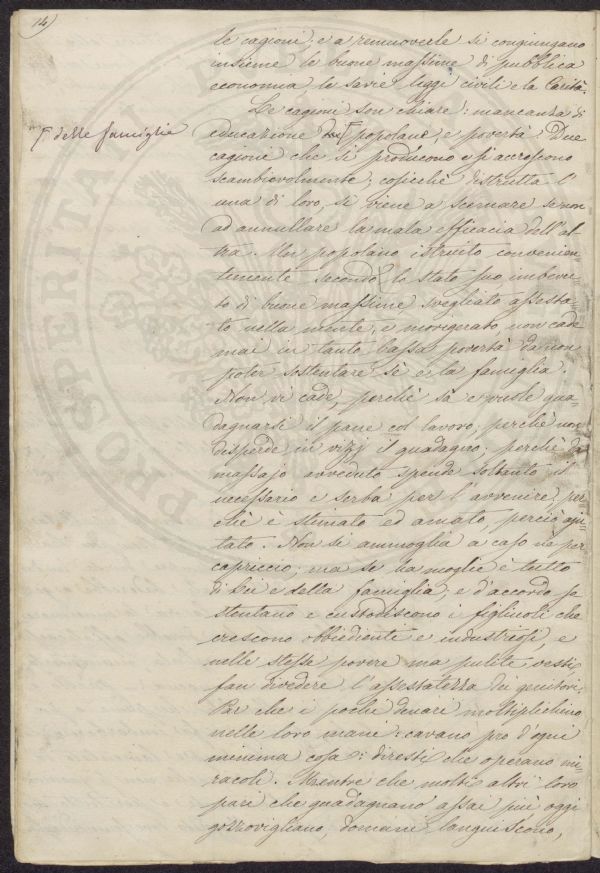 14)
le cagioni; e a remuoverle si congiungano
insieme le buone massime di pubblica
economia, le savie leggi civili e la Carità.
Le cagioni son chiare: mancanza di
Γ delle famiglie
educazione Γ popolane, e povertà. Due
cagioni che si producono e si accrescono
scambievolmente; cosicchè distrutta l'
una di loro, si viene a scemare se non
ad annullare la mala efficacia dell'al-
tra. Un popolano istruito convenien-
temente secondo lo stato suo, imbevu-
to di buone massime svegliato assesta-
to nella mente, e morigerato, non cade
mai in tanto bassa povertà da non
poter sostentare sè e la famiglia.
Non vi cade, perchè sa e vuole gua-
dagnarsi il pane col lavoro; perchè non
disperde in vizj il guadagno; perchè da
massajo avveduto spende soltanto il
necessario e serba per l'avvenire; per
chè è stimato ed amato, perciò aju-
tato. Non si ammoglia a caso nè per
capriccio; ma se ha moglie è tutto
di Lei e della famiglia; e d'accordo so
stentano e custodiscono i figliuoli che
crescono obbedienti e industriosi, e
nelle stesse povere ma pulite vesti
fan divedere l'assestatezza dei genitori.
Par che i pochi denari moltiplichino
nelle loro mani: cavano pro d'ogni
minima cosa: diresti che operano mi-
racoli. Mentre che molti altri loro
pari che guadagnano assai più oggi
gozzovigliano, domani languiscono,
PROSPERITÀ